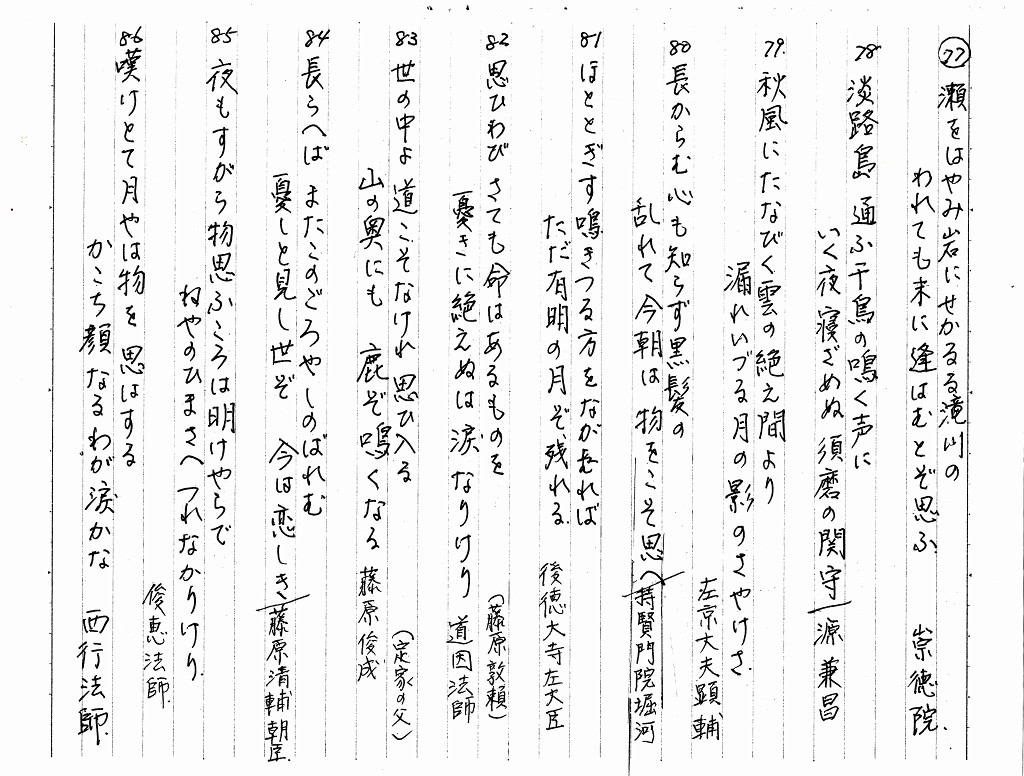 77 瀬をはやみ岩にせかるる滝川の
われても末に逢はむとぞ思ふ 崇徳院.
78 淡路島 通ふ千鳥の鳴く声に
いく夜寝ざめぬ 須磨の関守/源兼昌
79. 秋風にたなびく雲の絶え間より
漏れいづる月の影のさやけさ.
左京大夫顕輔
80 長からむ心も知らず黒髪の
乱れて今朝は物をこそ思へ/待賢門院堀河
81 ほととぎす鳴きつる方をながむれば
ただ有明の月ぞ残れる. 後徳大寺左大臣
82 思ひわび さても命はあるものを (藤原敦頼)
憂きに絶えぬは涙なりけり 道因法師
83 世の中よ 道こそなけれ思ひ入る (定家の父)
山の奥にも 鹿ぞ鳴くなる 藤原俊成
84 長らへば またこのごろやしのばれむ
憂しと見し世ぞ 今は恋しき/藤原清輔朝臣.
85 夜もすがら物思ふころは明けやらで
ねやのひまさへつれなかりけり.
俊恵法師.
86 嘆けとて月やは物を 思はする
かこち顔なるわが涙かな 西行法師.